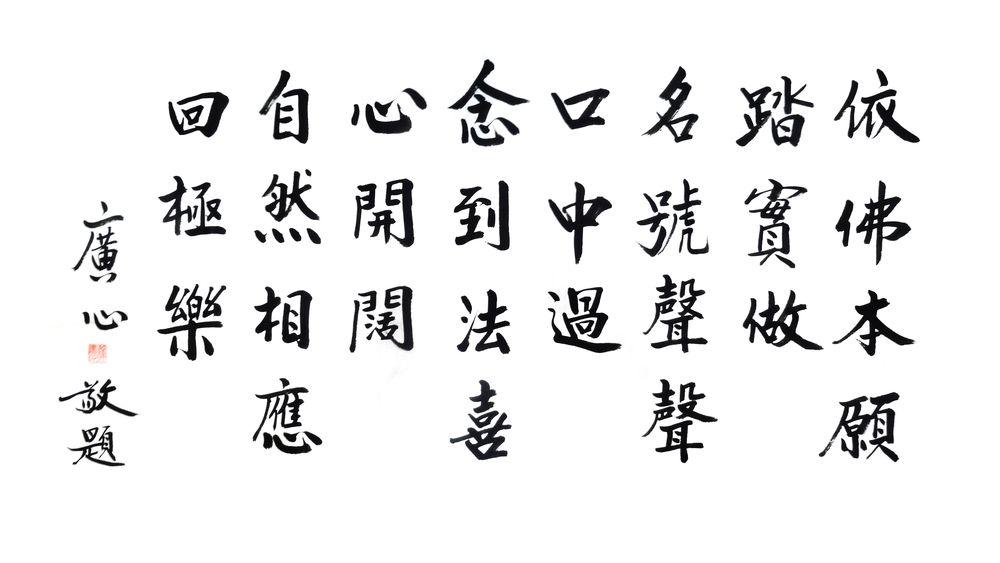 依佛本願
踏實做
名號聲聲
口中過
念到法喜
心開闊
自然相應
回極樂
廣心敬題